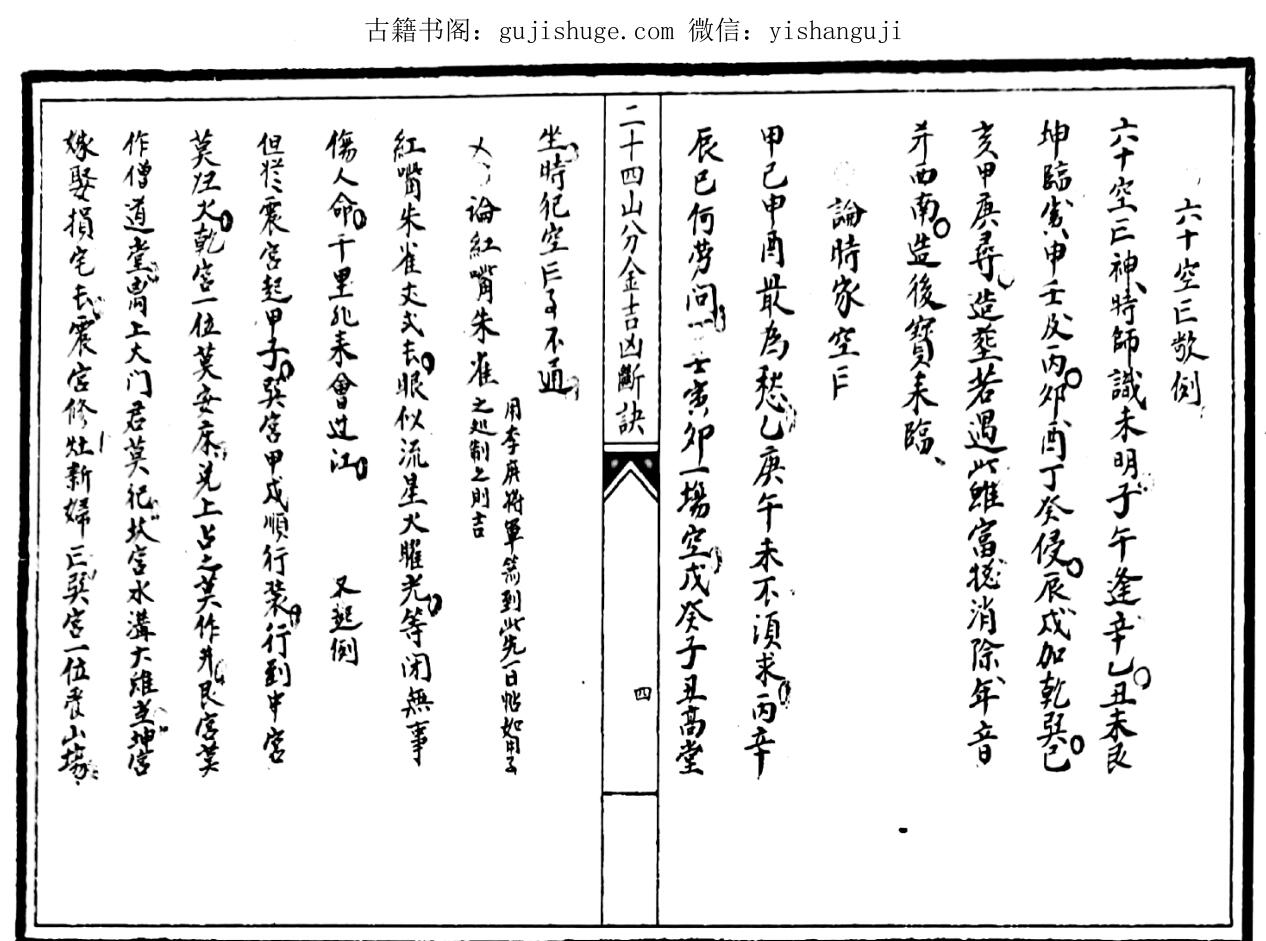 古籍书阁：gujishuge.com 微信：yishanguji
六十空亡歌例
六十空亡神時師識未明子午逢辛乙丑未艮
坤臨寅申壬及丙卯酉丁癸侵辰戌加乾巽巳
亥甲庚尋造塟若遇此雖富揔消除年音
并西南造後寶来臨
論時家空亡
甲己申酉最為愁乙庚午未不須求丙辛
辰巳何劳問丁壬寅卯一場空戊癸子丑高堂
二十四山分金吉凶斷訣
四
坐時犯空亡不通
又論紅嘴朱雀
用李廣將軍箭到此先一日帖如甲子
之処制之則吉
紅嘴朱雀丈式長眼似流星火耀光等闲無事
傷人命千里飛来會过江 又起例
但於震宮起甲子巽宮甲戌順行裝行到中宮
莫归火乾宮一位莫安床兑上占之莫作井艮宮莫
作僧道堂离上大门君莫犯坎宮水溝大难当坤宮
嫁娶損宅长震宮修灶新婦亡巽宮一位是山塲